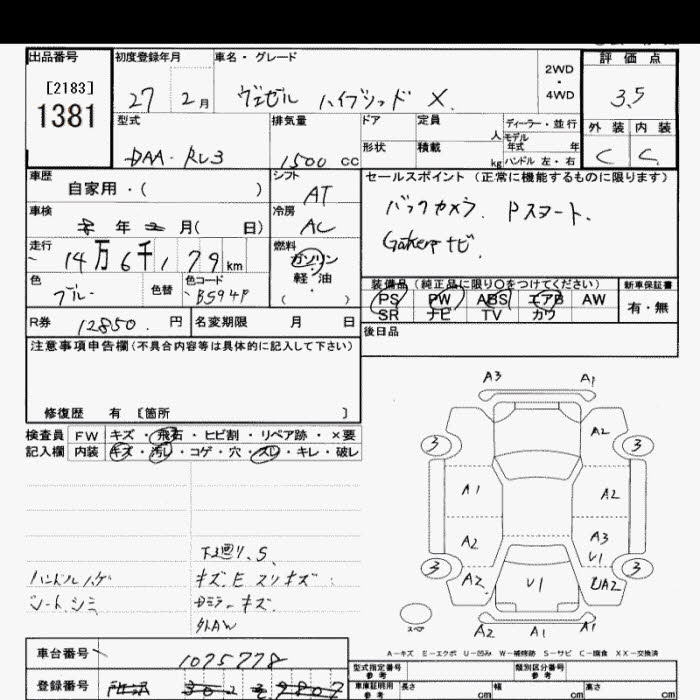 出品番号 初度登録年月 車名・グレード 評価点
[2183]
1381
27 2月 ヴェゼル ハイブリッド X. 2WD・4WD 3.5
型式 排気量 ドア 定員 人 ディーラー・並行 外装 内装
モデル年式 年
DAA-RU3 1500 cc 形状 積載 kg ハンドル 左・右 C C
車歴 シフト セールスポイント (正常に機能するものに限ります)
自家用・( ) AT
バックカメラ. Pスタート.
車検 年 月( 日) 冷房 AC
ナビ.
走行 燃料
14万6千179km ガソリン
軽・油
( )
装備品 (純正品に限り○をつけてください) 新車保証書
色 色替 色コード
ブルー B594P
PS PW ABS エアB AW 有・無
SR ナビ TV カワ
R券 12850. 円 名変期限 月 日
後日品
注意事項申告欄(不具合内容等は具体的に記入して下さい)
修復歴 有 [箇所 ]
検査員 FW キズ・飛石・ヒビ割・リペア跡・×要
記入欄 内装 キズ・汚レ・コゲ・穴・スレ・キレ・破レ
A3 A1
A2
3 3
A1 A2
A2 A3
V1
3 3
A2 V1 UA2
スペア
A2 A1 A1
下廻リ.S.
ハンドルハゲ キズ.E スリキズ
シートシミ Dミラーキズ
外AW
A-キズ E-エクボ U-凹み W-補修跡 S-サビ C-腐食 XX-交換済
車台番号 1075778
登録番号
型式指定番号 参考 類別区分番号 参考
車庫証明用 参考 長さ cm 幅 cm 高さ cm